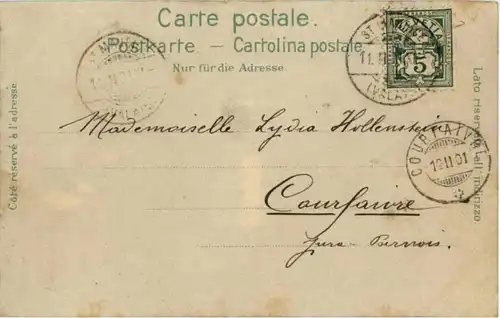 Carte postale.
Postkarte. — Cartolina postale.
Nur für die Adresse.
Côté réservé à l'adresse
Lato riservato all'indirizzo.
HELVETIA
5
ST. MAURICE
11. II
(VALAIS)
(VALAIS)
COURFAIVRE
12 II 01
Mademoiselle Lydia Hollenstein
Courfaivre
Jura-Bernois.